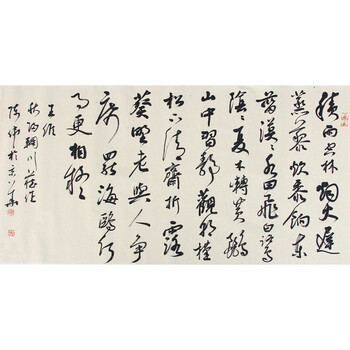 積雨空林烟火遲
蒸藜炊黍餉東
菑漠漠水田飛白鷺
陰陰夏木轉黄鸝
山中習静觀朝槿
松下清齋折露
葵野老與人爭
席罷海鷗何
事更相疑
王維
積雨輞川莊作
於京華